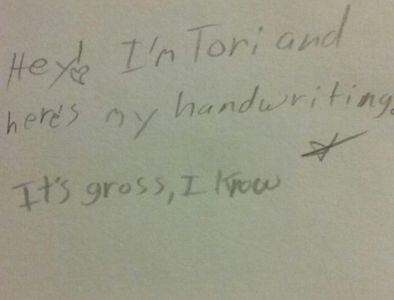 Hey! I'm Tori and
here's my handwriting.
It's gross, I know